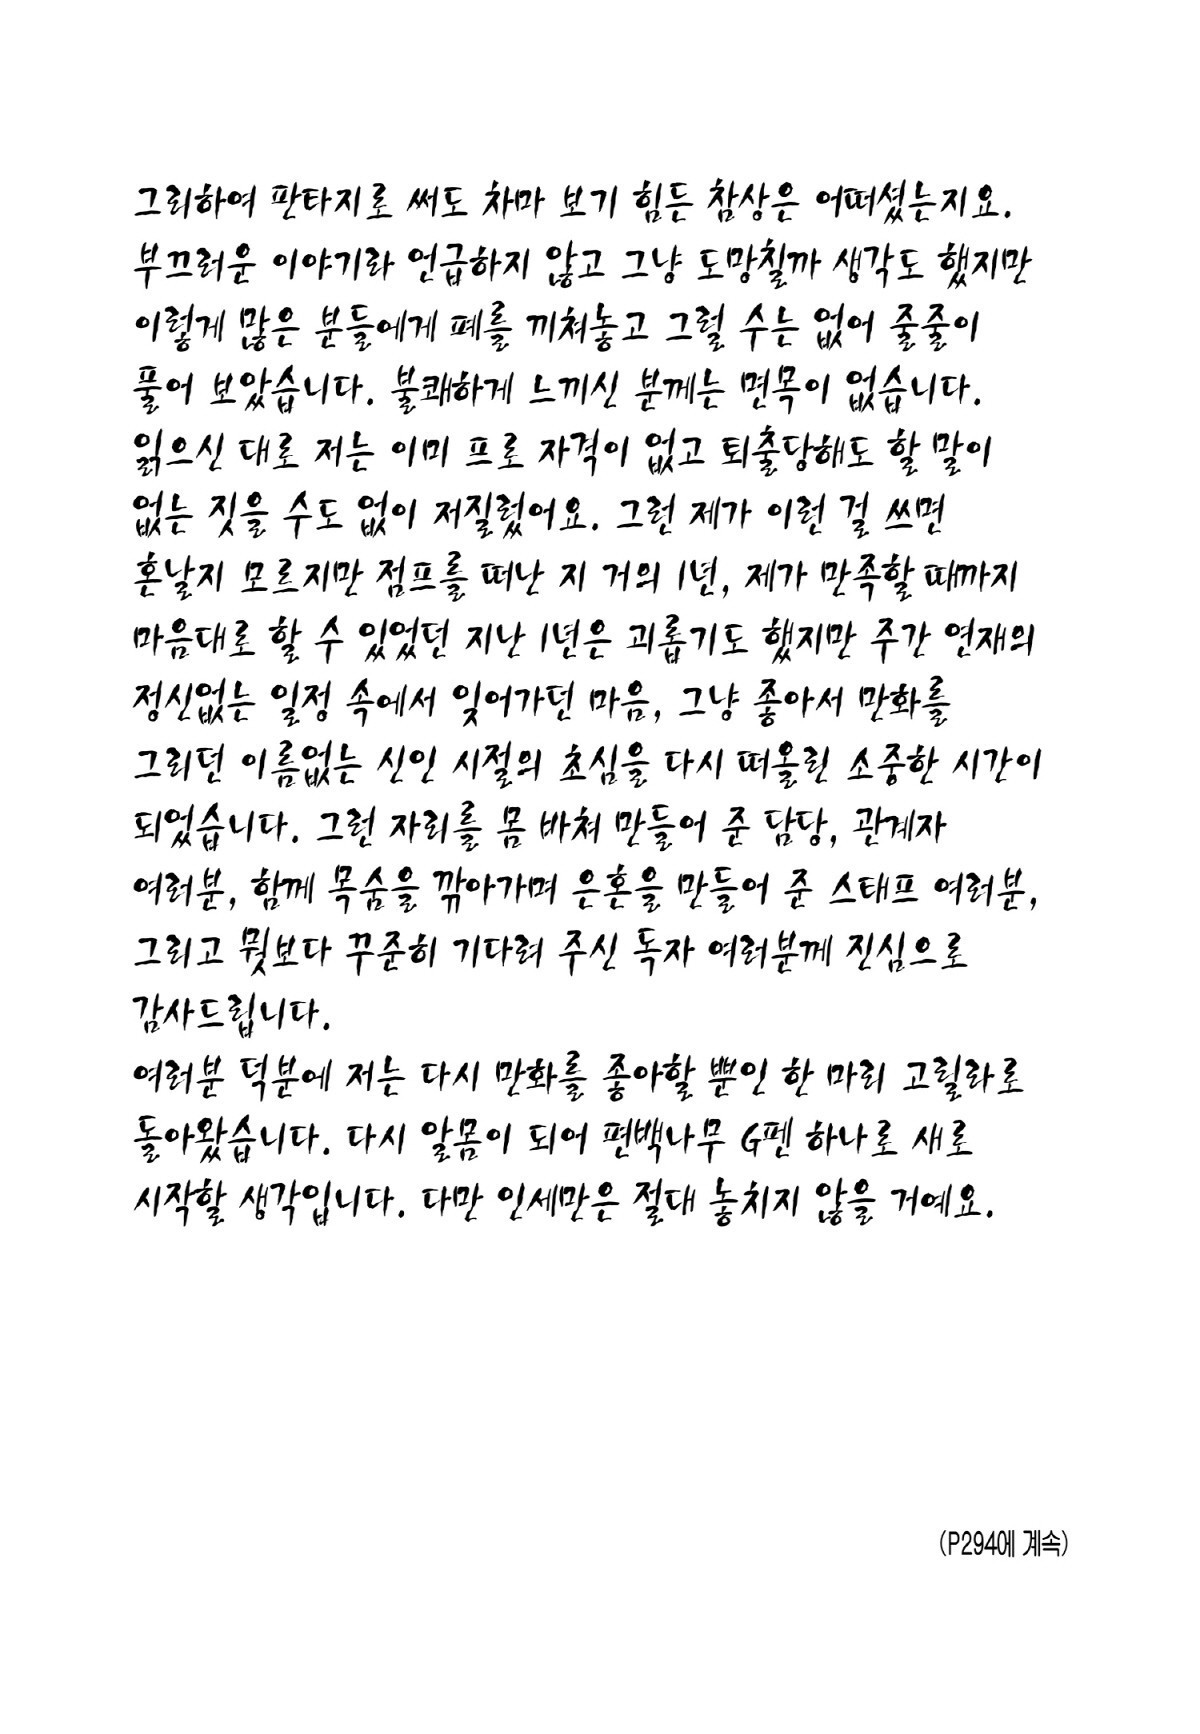 그리하여 판타지로 써도 차마 보기 힘든 참상은 어떠셨는지요.
부끄러운 이야기라 언급하지 않고 그냥 도망칠까 생각도 했지만
이렇게 많은 분들에게 폐를 끼쳐놓고 그럴 수는 없어 줄줄이
풀어 보았습니다. 불쾌하게 느끼신 분께는 면목이 없습니다.
읽으신 대로 저는 이미 프로 자격이 없고 퇴출당해도 할 말이
없는 짓을 수도 없이 저질렀어요. 그런 제가 이런 걸 쓰면
혼날지 모르지만 점프를 떠난 지 거의 1년, 제가 만족할 때까지
마음대로 할 수 있었던 지난 1년은 괴롭기도 했지만 주간 연재의
정신없는 일정 속에서 잊어가던 마음, 그냥 좋아서 만화를
그리던 이름없는 신인 시절의 초심을 다시 떠올린 소중한 시간이
되었습니다. 그런 자리를 몸 바쳐 만들어 준 담당, 관계자
여러분, 함께 목숨을 깎아가며 은혼을 만들어 준 스태프 여러분,
그리고 뭣보다 꾸준히 기다려 주신 독자 여러분께 진심으로
감사드립니다.
여러분 덕분에 저는 다시 만화를 좋아할 뿐인 한 마리 고릴라로
돌아왔습니다. 다시 알몸이 되어 편백나무 G펜 하나로 새로
시작할 생각입니다. 다만 인세만은 절대 놓치지 않을 거예요.
(P294에 계속)